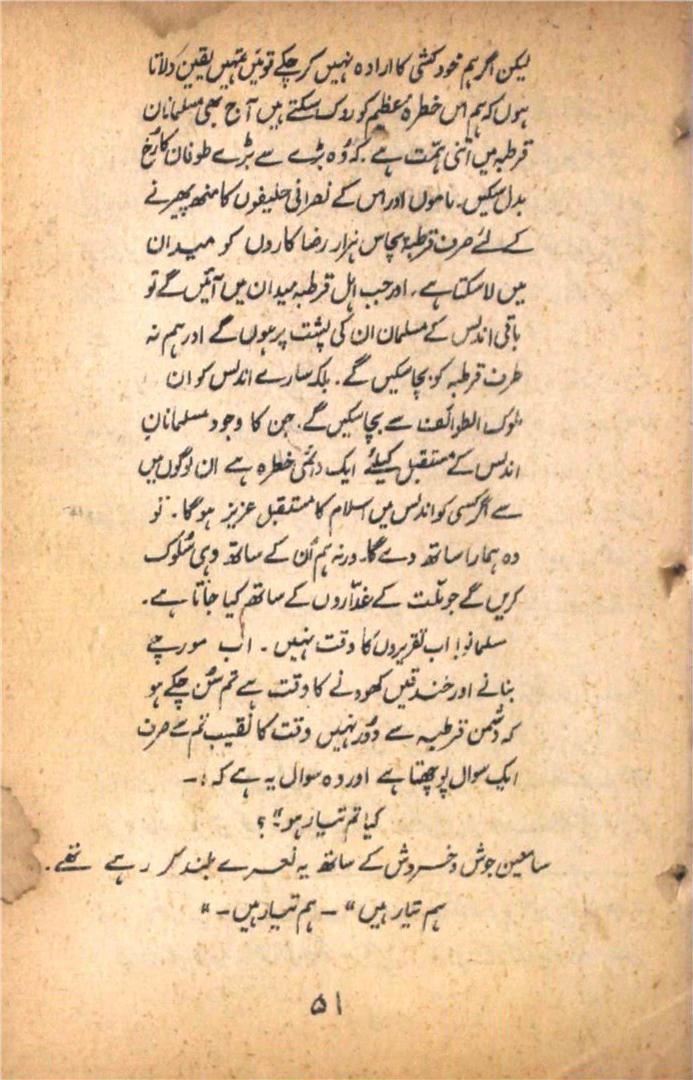 لیکن اگر ہم خودکشی کا ارادہ نہیں کر چکے تو میں تمہیں یقین دلاتا
ہوں کہ ہم اس خطرۂ عظیم کو روک سکتے ہیں آج بھی مسلمانان
قرطبہ میں اتنی ہمّت ہے کہ وُہ بڑے سے بڑے طوفان کا رُخ
بدل سکیں۔ ماموں اور اس کے نصرانی حلیفوں کا منھ پھیرنے
کے لئے صرف قرطبہ پچاس ہزار رضا کاروں کو میدان
میں لا سکتا ہے۔ اور جب اہل قرطبہ میدان میں آئیں گے تو
باقی اندلس کے مسلمان ان کی پشت پر ہوں گے اور ہم نہ
صرف قرطبہ کو بچا سکیں گے۔ بلکہ سارے اندلس کو ان
ملوک الطوائف سے بچا سکیں گے۔ جن کا وجود مسلمانانِ
اندلس کے مستقبل کیلئے ایک دائمی خطرہ ہے ان لوگوں میں
سے اگر کسی کو اندلس میں اسلام کا مستقبل عزیز ہوگا۔ تو
وہ ہمارا ساتھ دے گا۔ ورنہ ہم اُن کے ساتھ وہی سُلوک
کریں گے جو ملّت کے غدّاروں کے ساتھ کیا جاتا ہے۔
مسلمانو! اب تقریروں کا وقت نہیں۔ اب مورچے
بنانے اور خندقیں کھودنے کا وقت ہے تم سُن چکے ہو
کہ دشمن قرطبہ سے دُور نہیں وقت کا نقیب تم سے صرف
ایک سوال پوچھتا ہے اور وہ سوال یہ ہے کہ :۔
کیا تم تیار ہو"؟
سامعین جوش و خروش کے ساتھ یہ نعرے بلند کر رہے تھے۔
ہم تیار ہیں"۔ ہم تیار ہیں۔"
۵۱